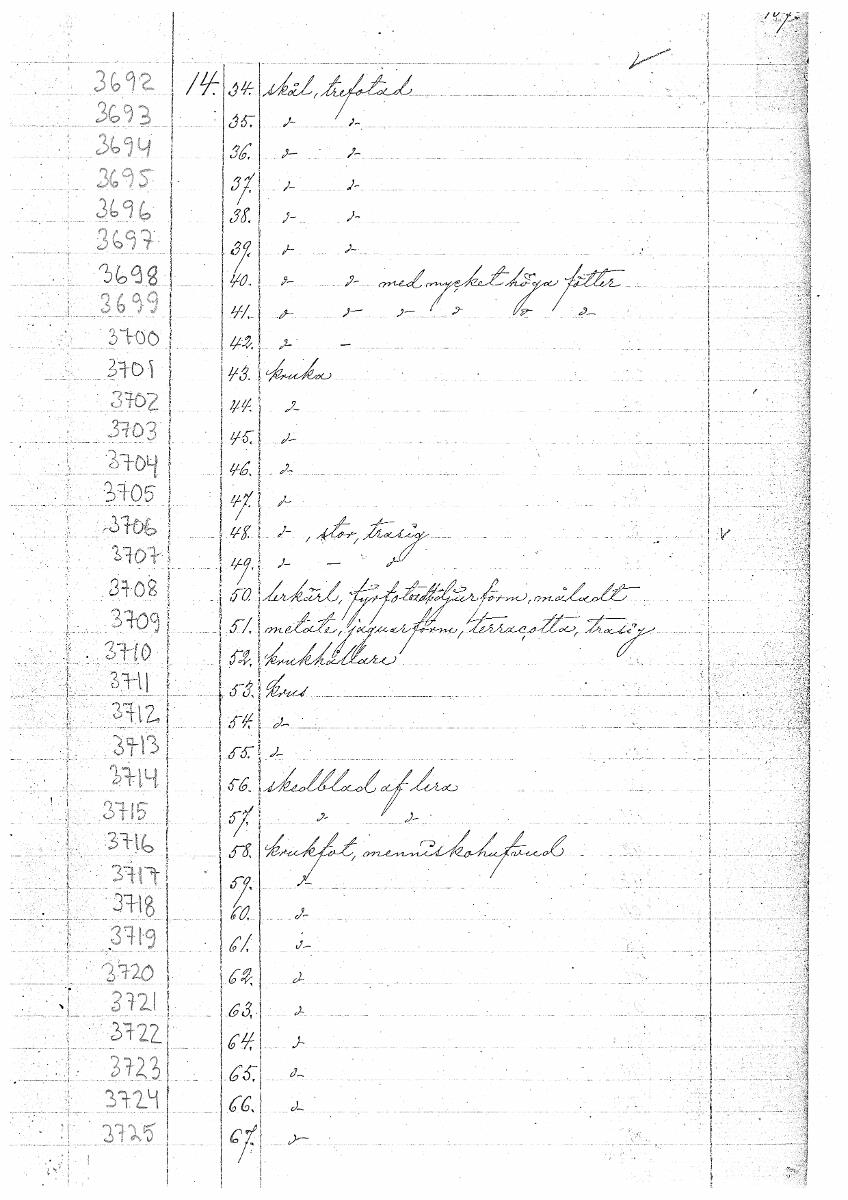 3692 14. 34. skål, trefotad
3693 35. d- d-
3694 36. d- d-
3695 37. d- d-
3696 38. d- d-
3697 39. d- d-
3698 40. d- d- med mycket höga fötter
3699 41. d- d- d- d- d- d-
3700 42. d- –
3701 43. kruka
3702 44. d-
3703 45. d-
3704 46. d-
3705 47. d-
3706 48. d- , stor, trasig v
3707 49. d- – d-
3708 50. lerkärl, djurform, måladt
3709 51. metate, jaguarform, terracotta, trasig
3710 52. krukhållare
3711 53. krus
3712 54. d-
3713 55. d-
3714 56. skedblad af lera
3715 57. d- d-
3716 58. krukfot, menniskohufvud
3717 59. d-
3718 60. d-
3719 61. d-
3720 62. d-
3721 63. d-
3722 64. d-
3723 65. d-
3724 66. d-
3725 67. d-